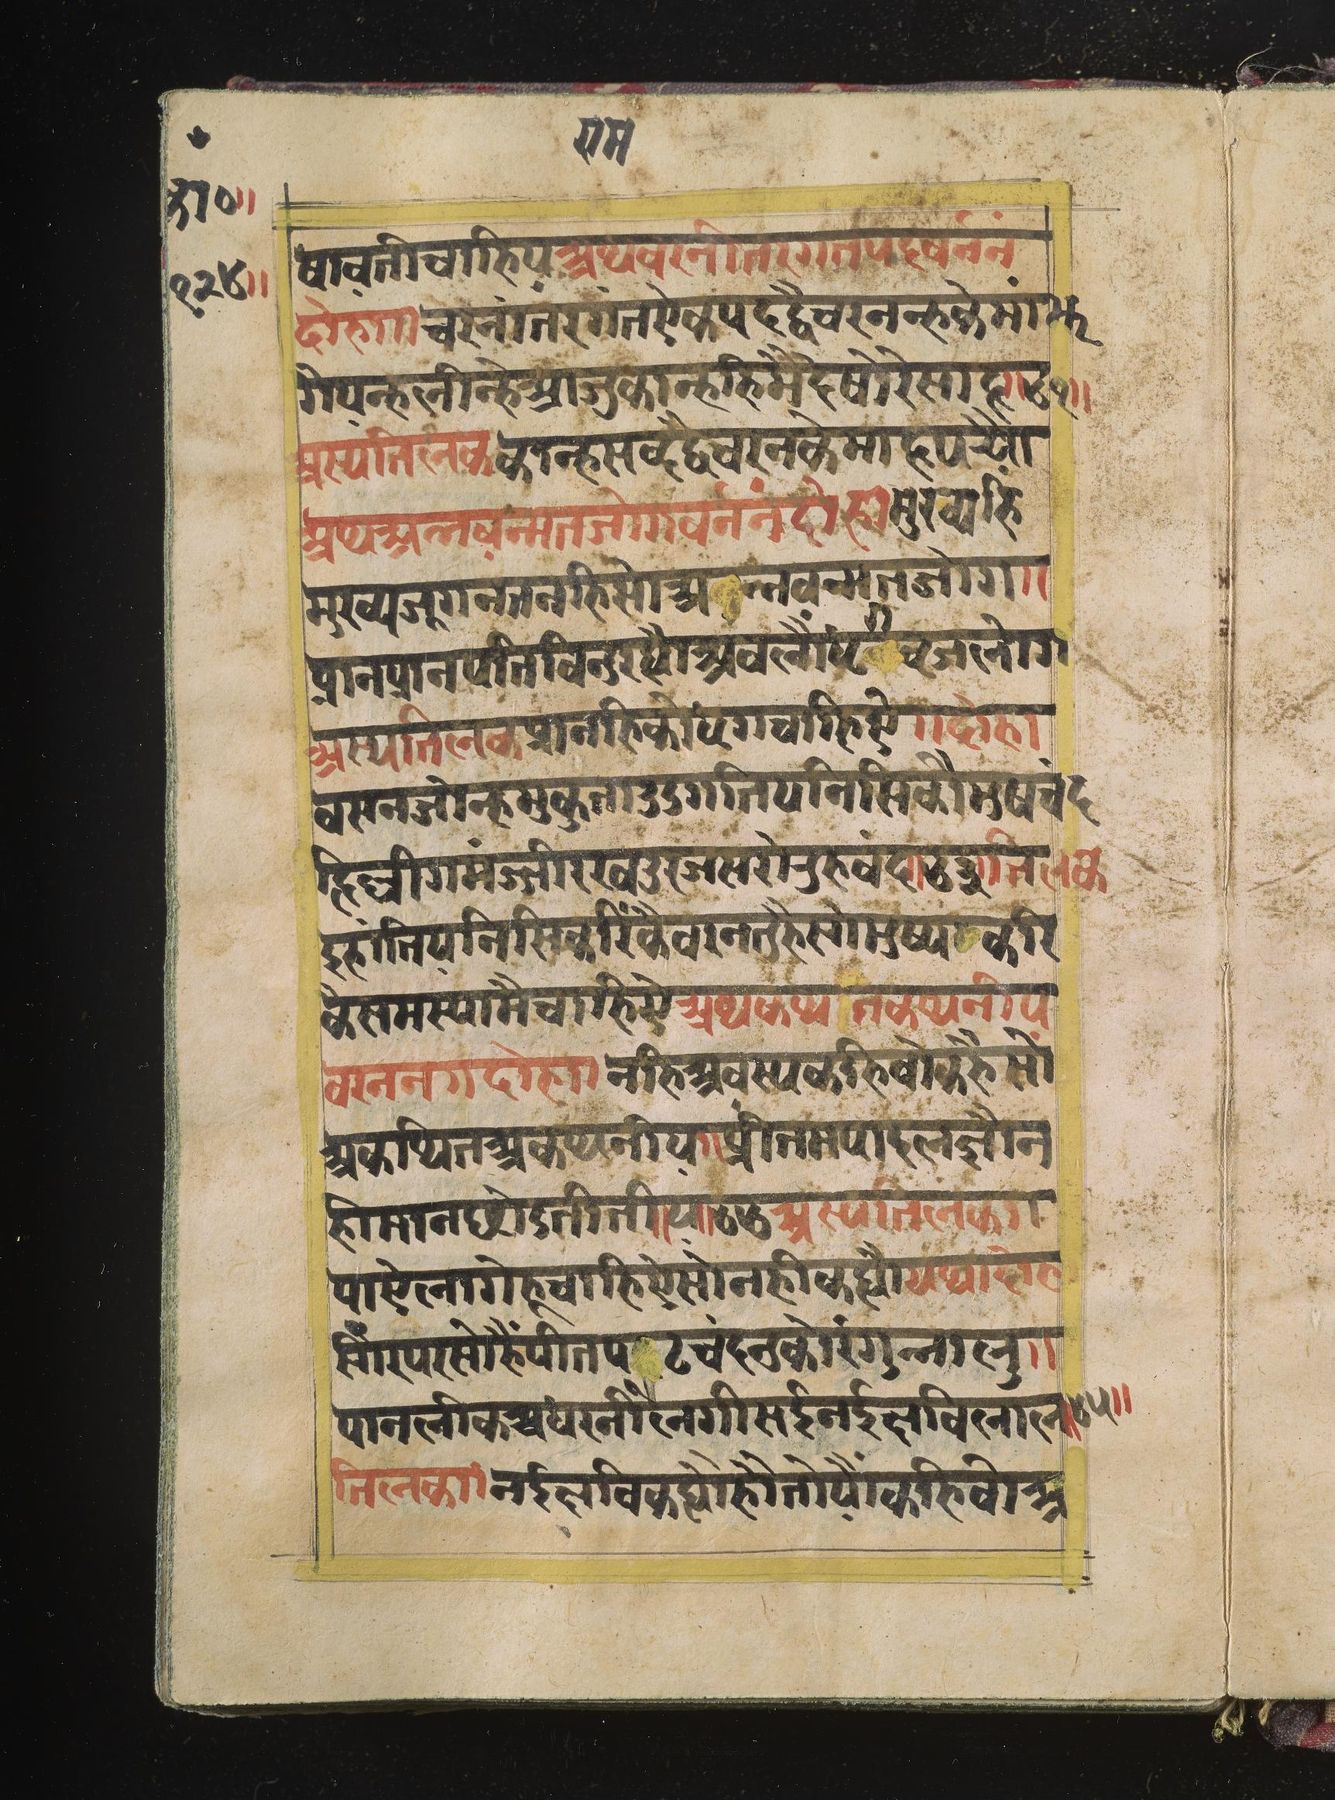 राम
का०॥
१२४॥
षावतीचाहिय अथचरनांतरगतपदवर्ननं
दोहा॥ चरनांतरगतऐकपद द्वैचरनन्हकेमांझ
गोपन्हलीन्हेआजुकान्हहिमैदेषोरिसाझ॥७१॥
अस्यतिलक कान्हसब्दद्वैचरनकेमाहपर्यौ
अथअभवन्मतजोगवर्ननंदोहा मुख्यहि
मुख्यजुगनतनहिसोअभवन्मतजोग॥
प्रानप्रानपतिविनुरह्यौअवलौंधृगव्रजलोग
अस्यतिलक प्रानहिकोधृगचाहिऐ॥दोहा
वसनजोन्हमुकुताउडगतियनिसिकौमुषचंद
झिल्लीगनमंजीररवउरजसरोरुहवंद॥७३॥तिलक
इहांतियनिसिकरिकैवरनतुहैसोमुष्यकरि
कैसमस्यामैचाहिऐ अथकथितकथनीय
वरनन॥दोहा॥ नहिअवस्यकहिवोकहैसो
अकथितअकथनीय॥प्रीतमपाइलग्नौन
हीमानछोडतीतीय॥७४॥अस्यतिलक॥
पाऐलागेहूचाहिऐसोनहीकह्यौयथादोहा
सिरपरसोहैंपीतपटचंदनकोरंगुभालु॥
पानलीकअधरनलगीसईनईछविलाल॥७५॥
तिलक॥ नईछविकह्यौहौतोयौंकहिवोअ